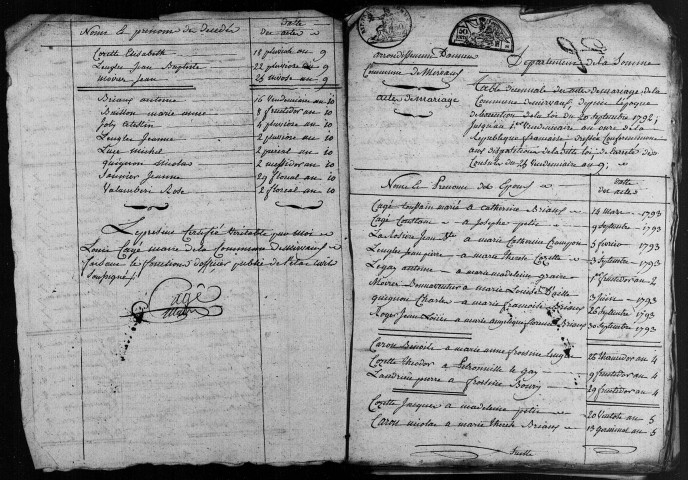 Noms et prenom des decedés
Date des actes
Cozette Elisabeth 18 pluviose an 9
Lengles Jean Baptiste 22 pluviose an 9
Jean 26 nivose an 9
Briaux antoine 16 Vendemiaire an 10
Buisson marie anne 8 frimaire an 10
Joly 4 pluviose an 10
Lengles Jeanne 2 pluviose an 10
Luce michel 2 prairial an 10
quignon Nicolas 2 messidor an 10
Saunier Jeanne 29 floreal an 10
Valambert Rose 2 floreal an 10
Le present Certifié Veritable par moi
Louis Cagé maire de la Commune de mirvaux
faisant les fonctions d'officier public de l'etat civil
soussigné
Cagé
Departement de la Somme
arrondissement
Commune de Mirvaux
acte de mariage
Table decennale des actes de mariage de la
Commune de mirvaux, depuis l'epoque
de l'execution de la loi du 20 septembre 1792;
Jusqu'au 1er Vendemiaire an onze de la
Republique francaise dressée Conformement
aux dispositions de la dite loi, de l'arreté des
Consuls du 25 Vendemiaire an 9;
Noms et Prenoms des Epoux
Date des actes
Cagé marié a Catherine Briaux 14 mars 1793
Cagé Constant a Josephe 9 septembre 1793
Jean Bte a marie Catherine 5 fevrier 1793
Lengles Jean pierre a marie therese Cozette 3 septembre 1793
Legay antoine a marie madeleine 1er fructidor an 2
Bonnaventure a marie Louise 3 juin 1793
quignon Charles a marie francoise Briaux 26 septembre 1793
Roger Jean Louis a marie angelique florence Briaux 30 septembre 1793
Caron a marie anne Lengles 26 thermidor an 4
Cozette theodor a Petronnille le gay 9 fructidor an 4
pierre a 29 fructidor an 4
Cozette Jacques a madeleine 20 Ventose an 5
Caron nicolas a marie therese Briaux 13 germinal an 5
Suitte